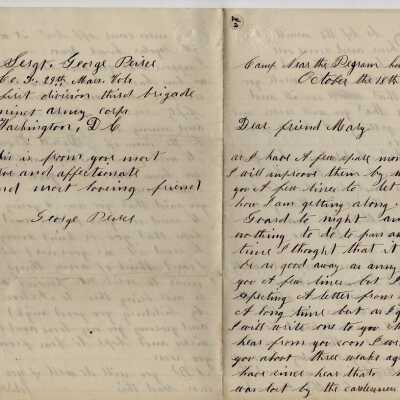 Sergt. George Peirce
Co. I. 29th Mass. Vols
first division third brigade
ninet army corps
Washington, D C
this is from your most
true and affectionate
and most loveing friend
George Peirce
Camp Near the Pegram
October the 18th
Dear friend Mary
as I have A few spare
I will improove them by
you A few lines to let
how I am getting along.
Goard to night and
nothing to do to pass
time I thought that it
be as good away as anny
you A few lines but I
A letter from
A long time but as I
I will write one to you
hear from you soon I
you about three weaks ago
have since hear that
was lost by the carelessness